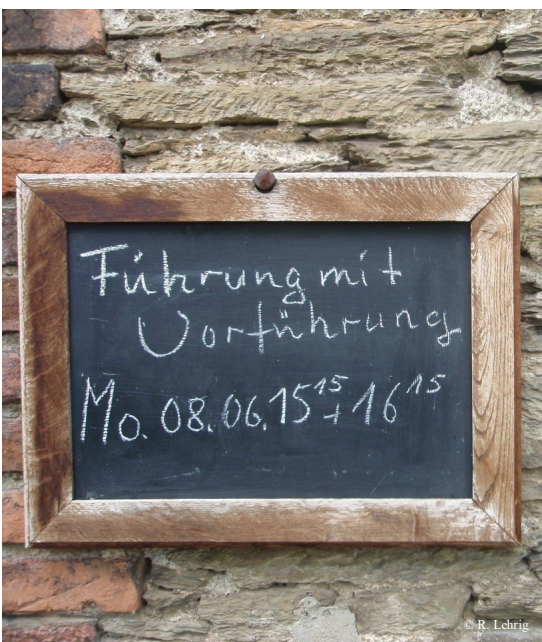 Führung mit
Vorführung
Mo. 08.06. 15¹⁵ + 16¹⁵
© R. Lehrig